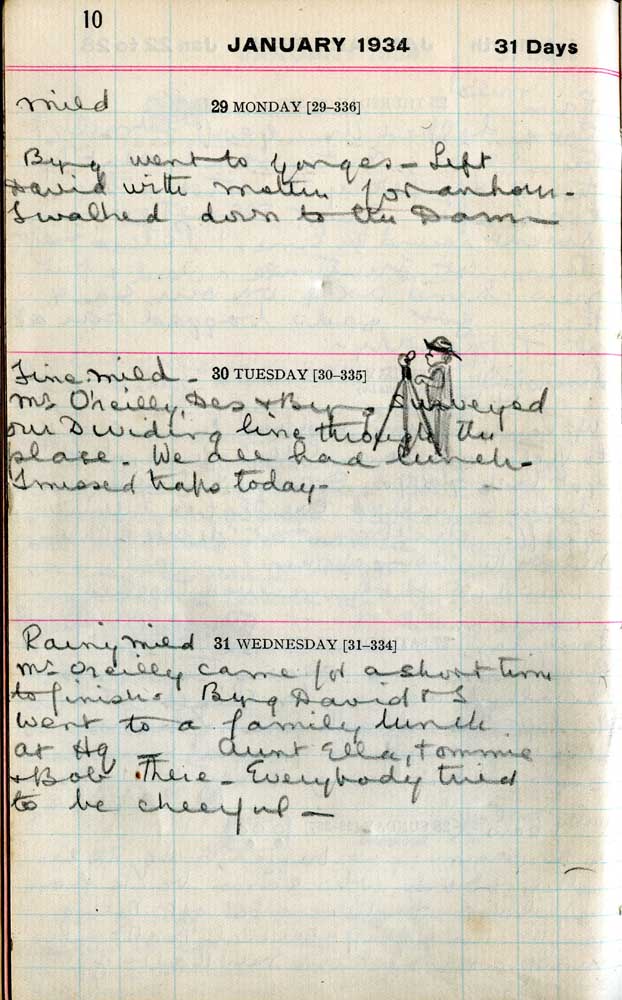 10
JANUARY 1934 31 Days
mild 29 MONDAY [29–336]
Byng went to Yonges - Left
David with mother for an hour -
I walked down to the Dam -
Fine mild - 30 TUESDAY [30–335]
Mr O'Reilly, Des & Byng surveyed
our Dividing line through the
place - We all had lunch -
I missed traps today -
Rainy mild 31 WEDNESDAY [31–334]
Mr O'Reilly came for a short time
to finish - Byng David & I
went to a family lunch
at Hq - Aunt Ella, Tommie
& Bob there - Everybody tried
to be cheerful -